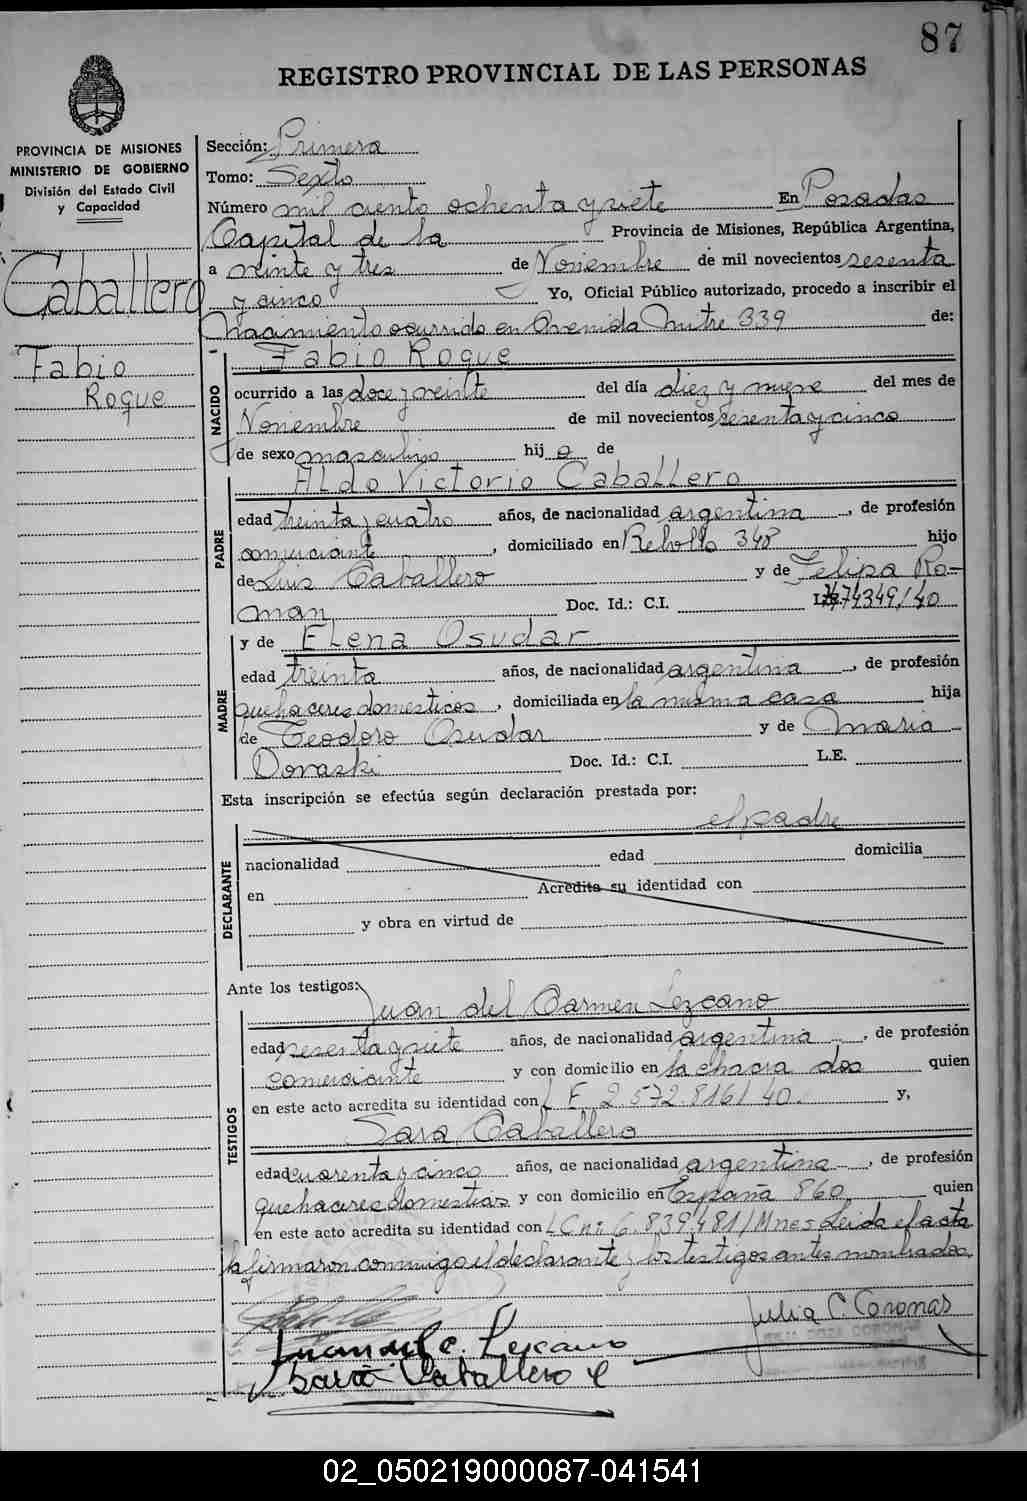 87
REGISTRO PROVINCIAL DE LAS PERSONAS
PROVINCIA DE MISIONES
MINISTERIO DE GOBIERNO
División del Estado Civil
y Capacidad
Caballero
Fabio
Roque
Sección: Primera
Tomo: Sexto
Número mil ciento ochenta y siete En Posadas
Capital de la Provincia de Misiones, República Argentina,
a veinte y tres de Noviembre de mil novecientos sesenta
y cinco Yo, Oficial Público autorizado, procedo a inscribir el
Nacimiento ocurrido en Avenida Mitre 339 de:
NACIDO
Fabio Roque
ocurrido a las doce y veinte del día diez y nueve del mes de
Noviembre de mil novecientos sesenta y cinco
de sexo masculino hij o de
PADRE
Aldo Victorio Caballero
edad treinta y cuatro años, de nacionalidad argentina, de profesión
comerciante, domiciliado en Rebollo 348 hijo
de Luis Caballero y de Felipa Ro-
man Doc. Id.: C.I. 74349/40
MADRE
y de Elena Osudar
edad treinta años, de nacionalidad argentina, de profesión
quehaceres domesticos, domiciliada en la misma casa hija
de Teodoro Osudar y de Maria
Doraski Doc. Id.: C.I. L.E.
Esta inscripción se efectúa según declaración prestada por:
el padre
DECLARANTE
nacionalidad edad domicilia
en Acredita su identidad con
y obra en virtud de
Ante los testigos: Juan del Carmen Lezcano
TESTIGOS
edad sesenta y siete años, de nacionalidad argentina, de profesión
comerciante y con domicilio en la chacra dos quien
en este acto acredita su identidad con L E 2.572.816/40. y,
Sara Caballero
edad cuarenta y cinco años, de nacionalidad argentina, de profesión
quehaceres domesticos y con domicilio en España 860 quien
en este acto acredita su identidad con LC nº 6.839.481/Mnes Leida el acta
la firmaron conmigo el declarante y los testigos antes nombrados.
Julia C. Coronas
Juan del C. Lezcano
Sara Caballero
02_050219000087-041541